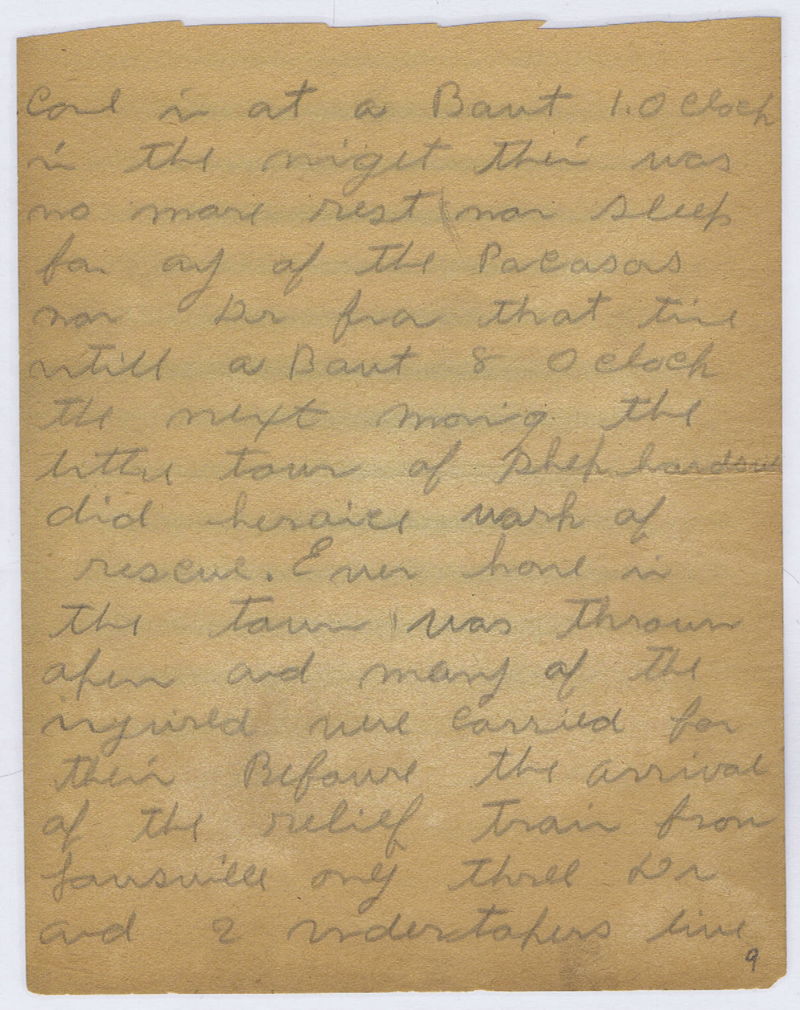 in at a Baut 1.0 Cloch
in the niget their was
no more rest nor sleep
for ay of the Pacasors
nor Dr fror that time
untill a Baut 8 O cloch
the next moring the
little town of Shephardsv
did heroice work of
rescue. Ever home in
the town was thrown
open and many of the
injured were carried for
their Befoure the arrival
of the relief train from
Lousville only three Dr
and 2 undertakers live
9